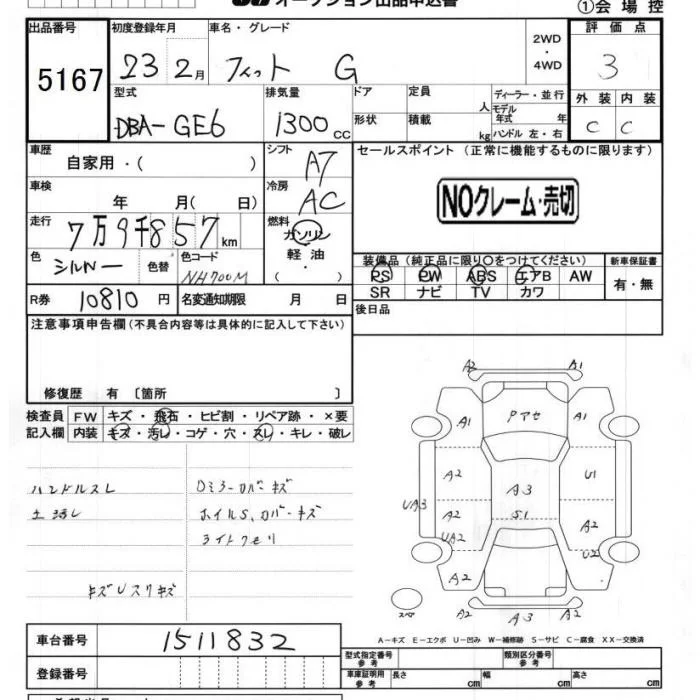 オークション出品申込書
①会場控
出品番号
5167
初度登録年月
23 2月
車名・グレード
フィット G
2WD
・
4WD
評価点
3
型式
DBA-GE6
排気量
1300cc
ドア
定員
人
形状
積載
kg
ディーラー・並行
モデル
年式 年
ハンドル 左・右
外装
C
内装
C
車歴
自家用・( )
シフト
A7
セールスポイント (正常に機能するものに限ります)
NOクレーム・売切
車検
年 月( 日)
冷房
AC
走行
7万9千857km
燃料
ガソリン
軽油
・
( )
色
シルバー
色替
色コード
NH700M
装備品 (純正品に限り〇をつけてください)
PS PW ABS エアB AW
SR ナビ TV カワ
新車保証書
有・無
R券
10810円
名変通知期限 月 日
後日品
注意事項申告欄(不具合内容等は具体的に記入して下さい)
修復歴 有 〔箇所 〕
検査員
記入欄
FW キズ・飛石・ヒビ割・リペア跡・×要
内装 キズ・汚レ・コゲ・穴・スレ・キレ・破レ
ハンドルスレ
Dミラーカバーキズ
ホイルS、カバーキズ
ライトクモリ
キズUスリキズ
A2 A1
A1 Pアセ A1
A2 A3 U1
UA3 A2 S1 A2
UA2 U2
A2 A2
スペア
A2 A3 A2
A-キズ E-エクボ U-凹み W-補修跡 S-サビ C-腐食 XX-交換済
車台番号
1511832
登録番号
型式指定番号
参考
類別区分番号
参考
車庫証明用
参考
長さ cm
幅 cm
高さ cm